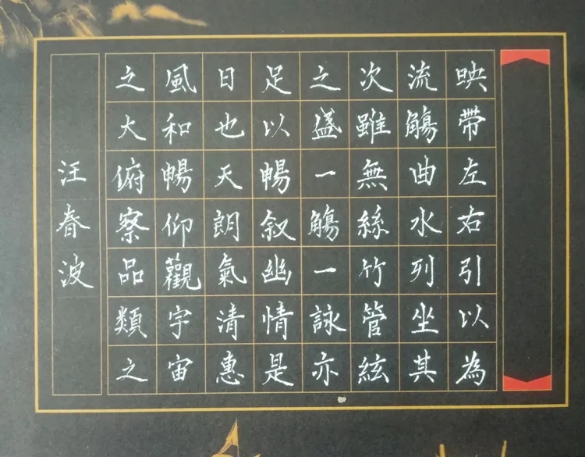 映帶左右引以為
流觴曲水列坐其
次雖無絲竹管絃
之盛一觴一詠亦
足以暢叙幽情是
日也天朗氣清惠
風和暢仰觀宇宙
之大俯察品類之
汪春波